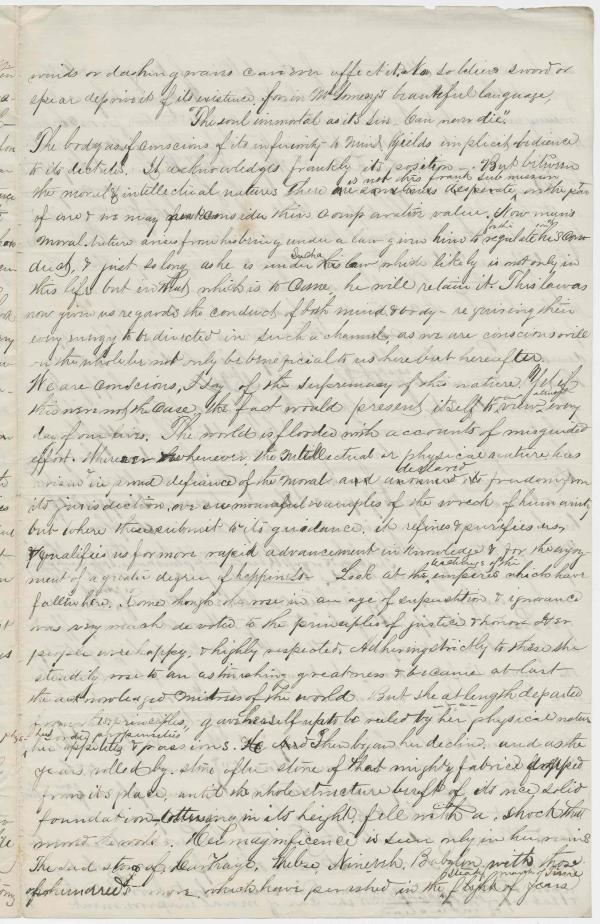 winds or dashing waves can ever affect it. No soldiers sword or
spear deprive it of its existence, for in Mc beautiful language,
"The soul immortal as its sire Can never die".
The body as if conscious of its inferiority to mind yields implicit obedience
to its dictates. It acknowledges frankly its position But between
the moral & intellectual natures there is not this frank submission on the part
of one & we may consider their comparative value. Now man's
moral nature arises from his being under a law given him to regulate his con
duct, & just so long as he is under such a law which likely is not only in
this life but in that which is to come he will retain it. This law as
now given us regards the conduct of both mind & body - requiring their
every energy to be directed in such a channel, as we are conscious will
on the whole be not only be beneficial to us here but hereafter.
We are conscious, I say of the supremacy of this nature. Yet if
this were not the case, the fact would present itself to view almost every
day of our lives. The world is flooded with accounts of misguided
effort. whenever the intellectual or physical nature has
in proud defiance of the moral and declared its freedom from
its jurisdiction, we see mournful examples of the wreck of humanity
but where these submit to its guidance, it refines & purifies us,
& qualifies us for more rapid advancement in knowledge & for the enjoy-
ment of a greater degree of happiness. Look at the empires which have
fallen here. Rome though she rose in an age of superstition & ignorance
was very much devoted to the principles of justice & honor. Her
people were happy, & highly respected. Adhering strictly to these she
steadily rose to an astonishing greatness & became at last
the acknowledged mistress of the world. But she at length departed
from her principles, gave herself up to be ruled by her physical nature
her appetites & passions. And Then began her decline, and as the
years rolled by, stone after stone of that mighty fabric dropped
from its place, until the whole structure bereft of its once solid
foundation tottering in its height, fell with a shock that
moved the world. Her magnificence is seen only in her ruins
The sad story of Carthage, Thebes, Nineveh, Babylon, with those
of hundreds more, which have perished in the flight of years